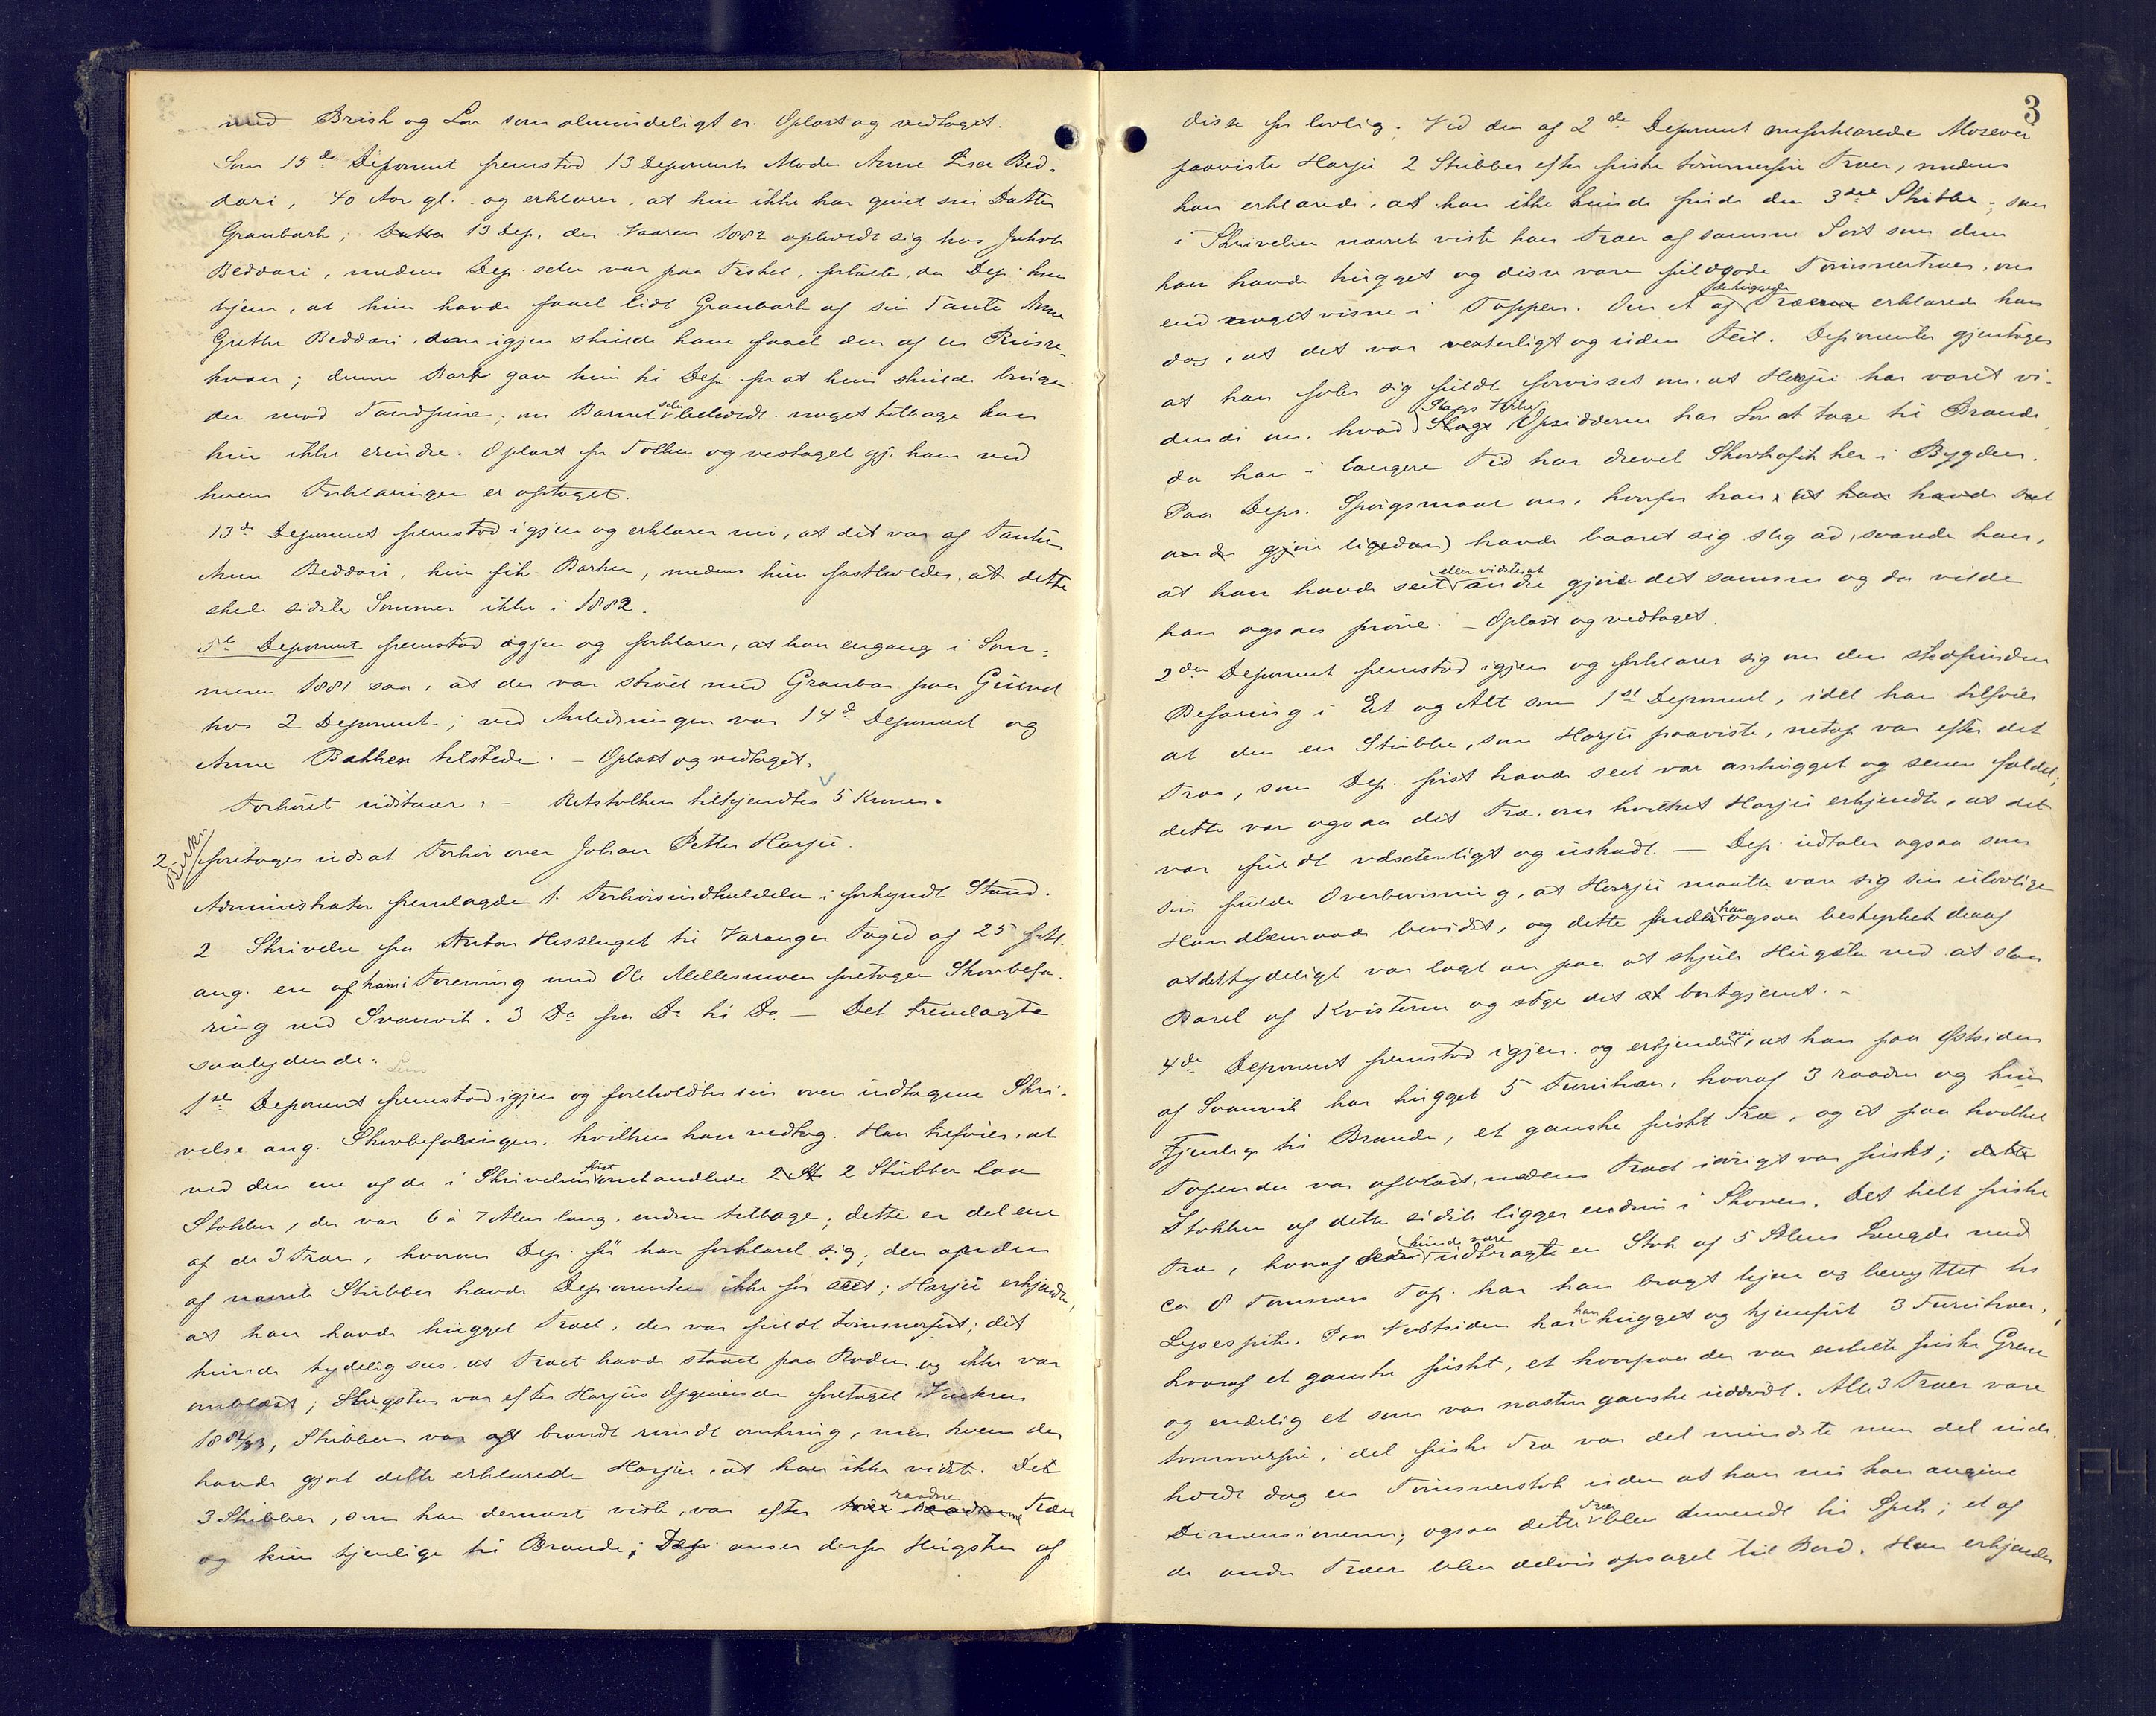 med Brisk og Lov som almindeligt er. Oplæst og vedtaget.
Som 15de Deponent fremstod 13 Deponents Moder Anne Lisa Bed-
dari, 40 Aar gl. og erklærer, at hun ikke har givet sin Datter
Granbark; 13 Dep. der Vaaren 1882 opholdt sig hos Jakob
Beddari, medens Dep. selv var paa Fiskeri, fortalte, da Dep. kom
hjem, at hun havde faaet lidt Granbark af sin Tante Anne
Grethe Beddari, som igjen skulde have faaet den af en Russe-
kvan; denne Bark gav hun til Dep. for at hun skulde bruge
den mod Tandpine; om Barnet selv beholdt noget tilbage kan
hun ikke erindre. Oplæst for Tolken og vedtaget gj. ham ved
hvem Forklaringen er optaget.
13de Deponent fremstod igjen og erklærer nu, at det var af Tanten
Anne Beddari, hun fik Barken, medens hun fastholder, at dette
skede sidste Sommer ikke i 1882.
5te Deponent fremstod igjen og forklarer, at han engang i Som-
meren 1881 saa, at der var strøet med Granbar paa Gulvet
hos 2 Deponent; ved Anledningen var 14de Deponent og
Anne Bakken tilstede. – Oplæst og vedtaget.
Forhøret udstaar. – Retstolken tilkjendtes 5 Kroner.
2 foretoges udsat Forhør over Johan Petter Harju.
Administrator fremlagde 1. Forhørsindkaldelse i forkyndt Stand.
2 Skrivelse fra Anton Hesseng til Varanger Foged af 25 f.M.
ang. en af ham i Forening med Ole Mellesmoen foretagen Skovbefa-
ring ved Svanvik. 3 Do fra Do til Do – Det Fremlagte
saalydende:
1ste Deponent fremstod igjen og foreholdtes sin oven indtagne Skri-
velse ang. Skovbefaringen, hvilken han vedtog. Han tilføier, at
ved den ene af de i Skrivelsen først omhandlede 2 Stubber laa
Stokken, der var 6 à 7 Alen lang, endnu tilbage; dette er det ene
af de 3 Træer, hvorom Dep. før har forklaret sig; den anden
af nævnte Stubber havde Deponenten ikke før seet; Harju erkjendte,
at han havde hugget Træet, der var fuldt tømmerført; det
kunde tydelig sees, at Træet havde staaet paa Roden og ikke var
omblæst; Hugsten var efter Harjus Opgivende foretaget Vinteren
1882/83, Stubben var brændt rundt omkring, men hvem der
havde gjort dette erklærede Harju, at han ikke vidste. De
3 Stubber, som han dernæst viste, var efter raadne Træer
og kun tjenlige til Brænde; Dep. anser derfor Hugsten af
3
disse for lovlig; Ved den af 2de Deponent omforklarede Moseven
paaviste Harju 2 Stubber efter friske tømmerføre Træer, medens
han erklærede, at han ikke kunde finde den 3die Stubbe; som
i Skrivelsen nævnt viste han Træer af samme Sort som dem
han havde hugget og disse vare fuldgode Tømmertræer, om
end noget visne i Toppen. Om et af de huggede Træer erklærede han
dog, at det var vexterligt og uden Feil. Deponenten gjentager
at han føler sig fuldt forvisset om, at Harju har været vi-
dende om, hvad Slags Virke Opsidderne har Lov at tage til Brænde,
da han i længere Tid har drevet Skovhofst her i Bygden.
Paa Deps. Spørgsmaal om, hvorfor han havde baaret sig slig ad, svarede han,
at han havde seet eller vidste at andre gjøre det samme og da vilde
han ogsaa prøve. – Oplæst og vedtaget.
2den Deponent fremstod igjen og forklarer sig om den stedfundne
Befaring i Et og Alt som 1ste Deponent, idet han tilføier
at den ene Stubbe, som Harju paaviste, netop var efter det
Træ, som Dep. først havde seet var anhugget og senere faldet;
dette var ogsaa det Træ, om hvilket Harju erkjendte, at det
var fuldt vexterligt og uskadt. – Dep. udtaler ogsaa som
sin fulde Overbevisning, at Harju maatte være sig sin ulovlige
Handlemaade bevidst, og dette finder han ogsaa bestyrket deraf
at det tydeligt var lagt an paa at skjule Hugsten ved at slaa
Barel af Kvistene og søge det bortgjemt. –
4de Deponent fremstod igjen og erkjender nu, at han paa Østsiden
af Svanvik har hugget 5 Furutræer, hvoraf 3 raadne og kun
tjenlige til Brænde, et ganske friskt Træ, og et paa hvilket
Toppen der var afblæst, medens Træet iøvrigt var friskt;
Stokken af dette sidste ligger endnu i Skoven. Det helt friske
Træ, hvoraf kunde være udbragt en Stok af 5 Alens Længde med
ca 8 Tommers Top, har han bragt hjem og benyttet til
Lysespik. Paa Vestsiden har han hugget og hjemført 3 Furutræer,
hvoraf et ganske friskt, et hvorpaa der var enkelte friske Grene
og endelig et som var næsten ganske uddødt. Alle 3 Træer vare
tømmerføre, det friske Træ var det mindste men det inde-
holdt dog en Tømmerstok uden at han nu kan angive
Dimensionerne; ogsaa dette Træ blev anvendt til Spik; et af
de andre Træer blev delvis opsaget til Bord. Han erkjender